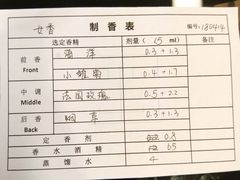 女香 制香表 编号:180414
选定香精 剂量( 15 ml) 备注
前香 海洋 0.3+1.3
Front 小雏菊 0.4+1.7
中调 法国玫瑰 0.5+2.2
Middle
后香 烟草 0.3+1.3
Back
定香剂 0.8
香水酒精 6.5
蒸馏水 4